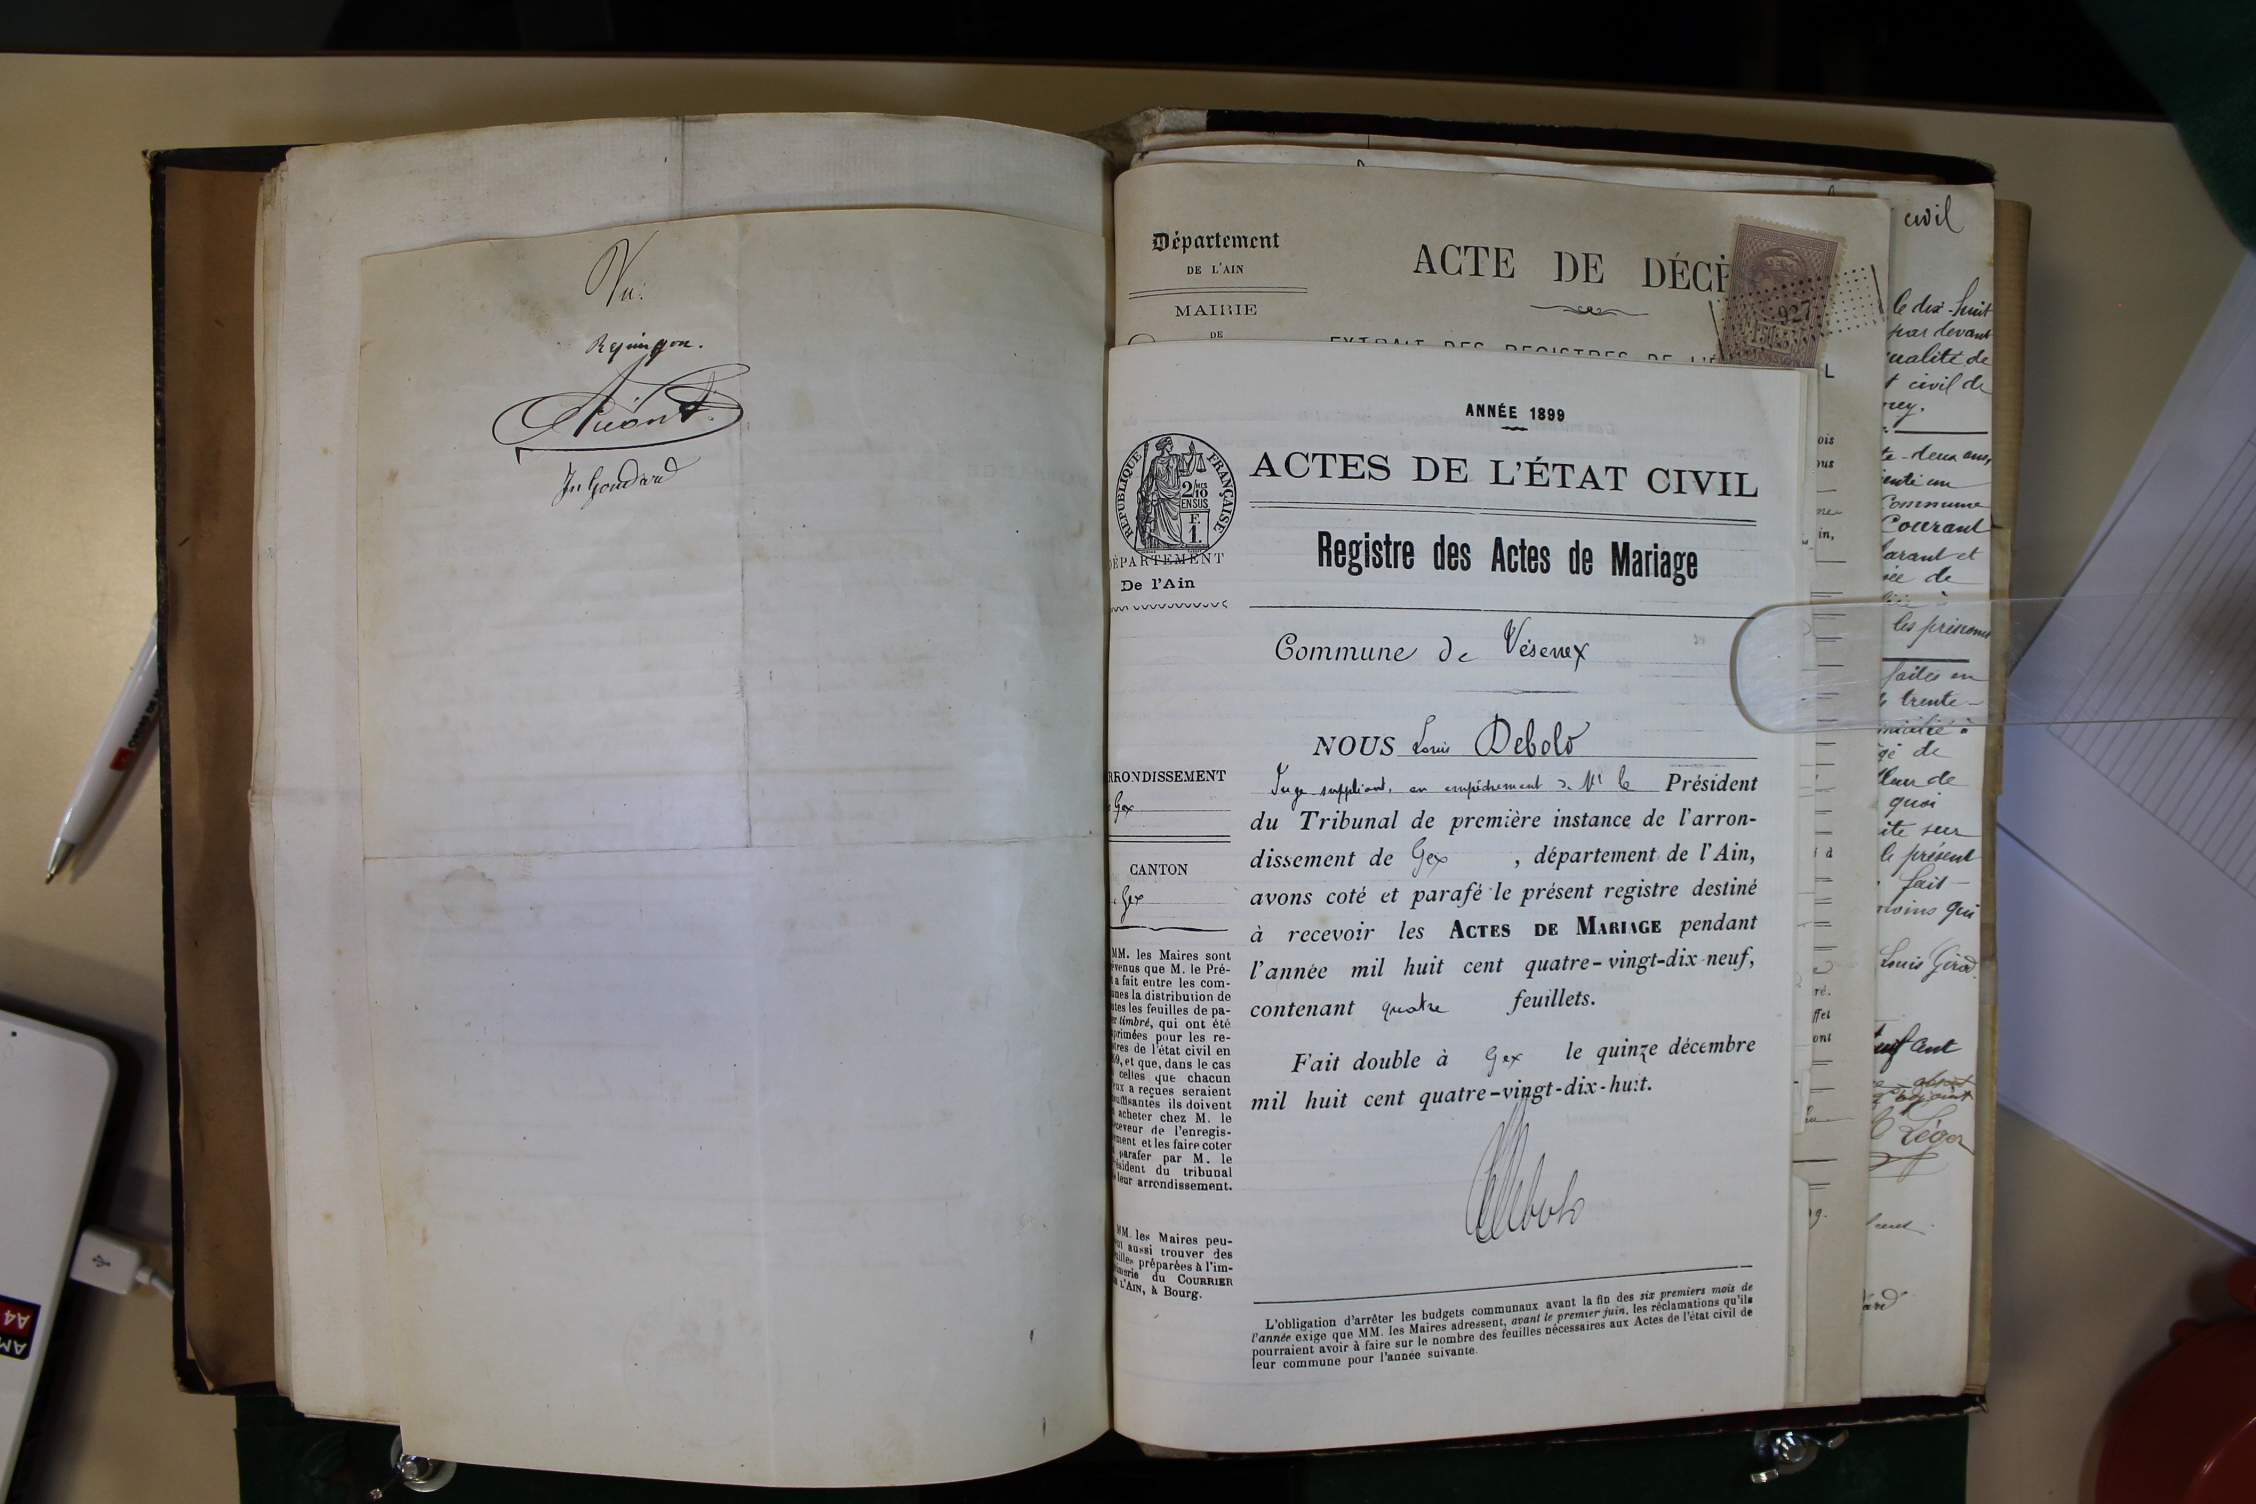 Vu:
Département
DE L'AIN
MAIRIE
DE
ACTE DE DÉCÈ
EXTRAIT DES REGISTRES DE L'É
L
927
ANNÉE 1899
ACTES DE L'ÉTAT CIVIL
Registre des Actes de Mariage
RÉPUBLIQUE FRANÇAISE
2/10
EN SUS
F.
1.
DÉPARTEMENT
De l'Ain
Commune de Vésenex
NOUS Louis Debolo
Juge suppléant, en empêchement de Mr le Président
du Tribunal de première instance de l'arron-
dissement de Gex , département de l'Ain,
avons coté et parafé le présent registre destiné
à recevoir les ACTES DE MARIAGE pendant
l'année mil huit cent quatre-vingt-dix-neuf,
contenant quatre feuillets.
Fait double à Gex le quinze décembre
mil huit cent quatre-vingt-dix-huit.
RRONDISSEMENT
Gex
CANTON
Gex
MM. les Maires sont
évenus que M. le Pré-
a fait entre les com-
nes la distribution de
tes les feuilles de pa-
timbré, qui ont été
primées pour les re-
tres de l'état civil en
, et que, dans le cas
celles que chacun
ux a reçues seraient
suffisantes ils doivent
acheter chez M. le
ceveur de l'enregis-
ment et les faire coter
parafer par M. le
ésident du tribunal
leur arrondissement.
MM. les Maires peu-
aussi trouver des
uilles préparées à l'im-
imerie du COURRIER
L'AIN, à Bourg.
L'obligation d'arrêter les budgets communaux avant la fin des six premiers mois de
l'année exige que MM. les Maires adressent, avant le premier juin, les réclamations qu'ils
pourraient avoir à faire sur le nombre des feuilles nécessaires aux Actes de l'état civil de
leur commune pour l'année suivante.
civil
le dix-huit
par devant
qualité de
civil de
te-deux ans,
Commune
Courant
larant et
de
les prénoms
faites en
trente-
de
de
quoi
ite sur
le présent
fait
moins qui
Louis Girod.
adjoint
Léger
A4